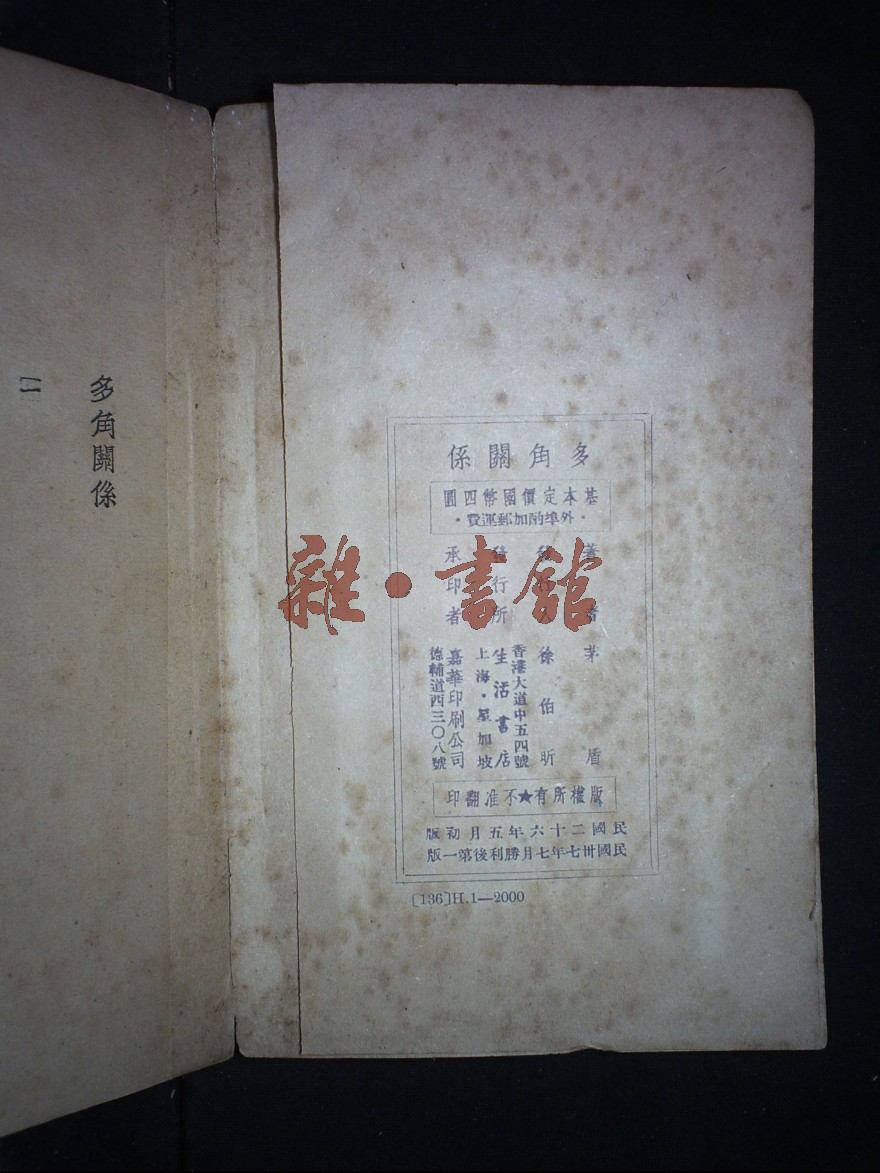 多角關係
基本定價國幣四圓
·外埠酌加郵運費·
著者 茅盾
發行人 徐伯昕
發行所 生活書店
香港大道中五四號
上海·星加坡
承印者 嘉華印刷公司
德輔道西三〇八號
版權所有★不准翻印
民國二十六年五月初版
民國卅七年七月勝利後第一版
[136]H.1—2000
多角關係
二
雜·書館